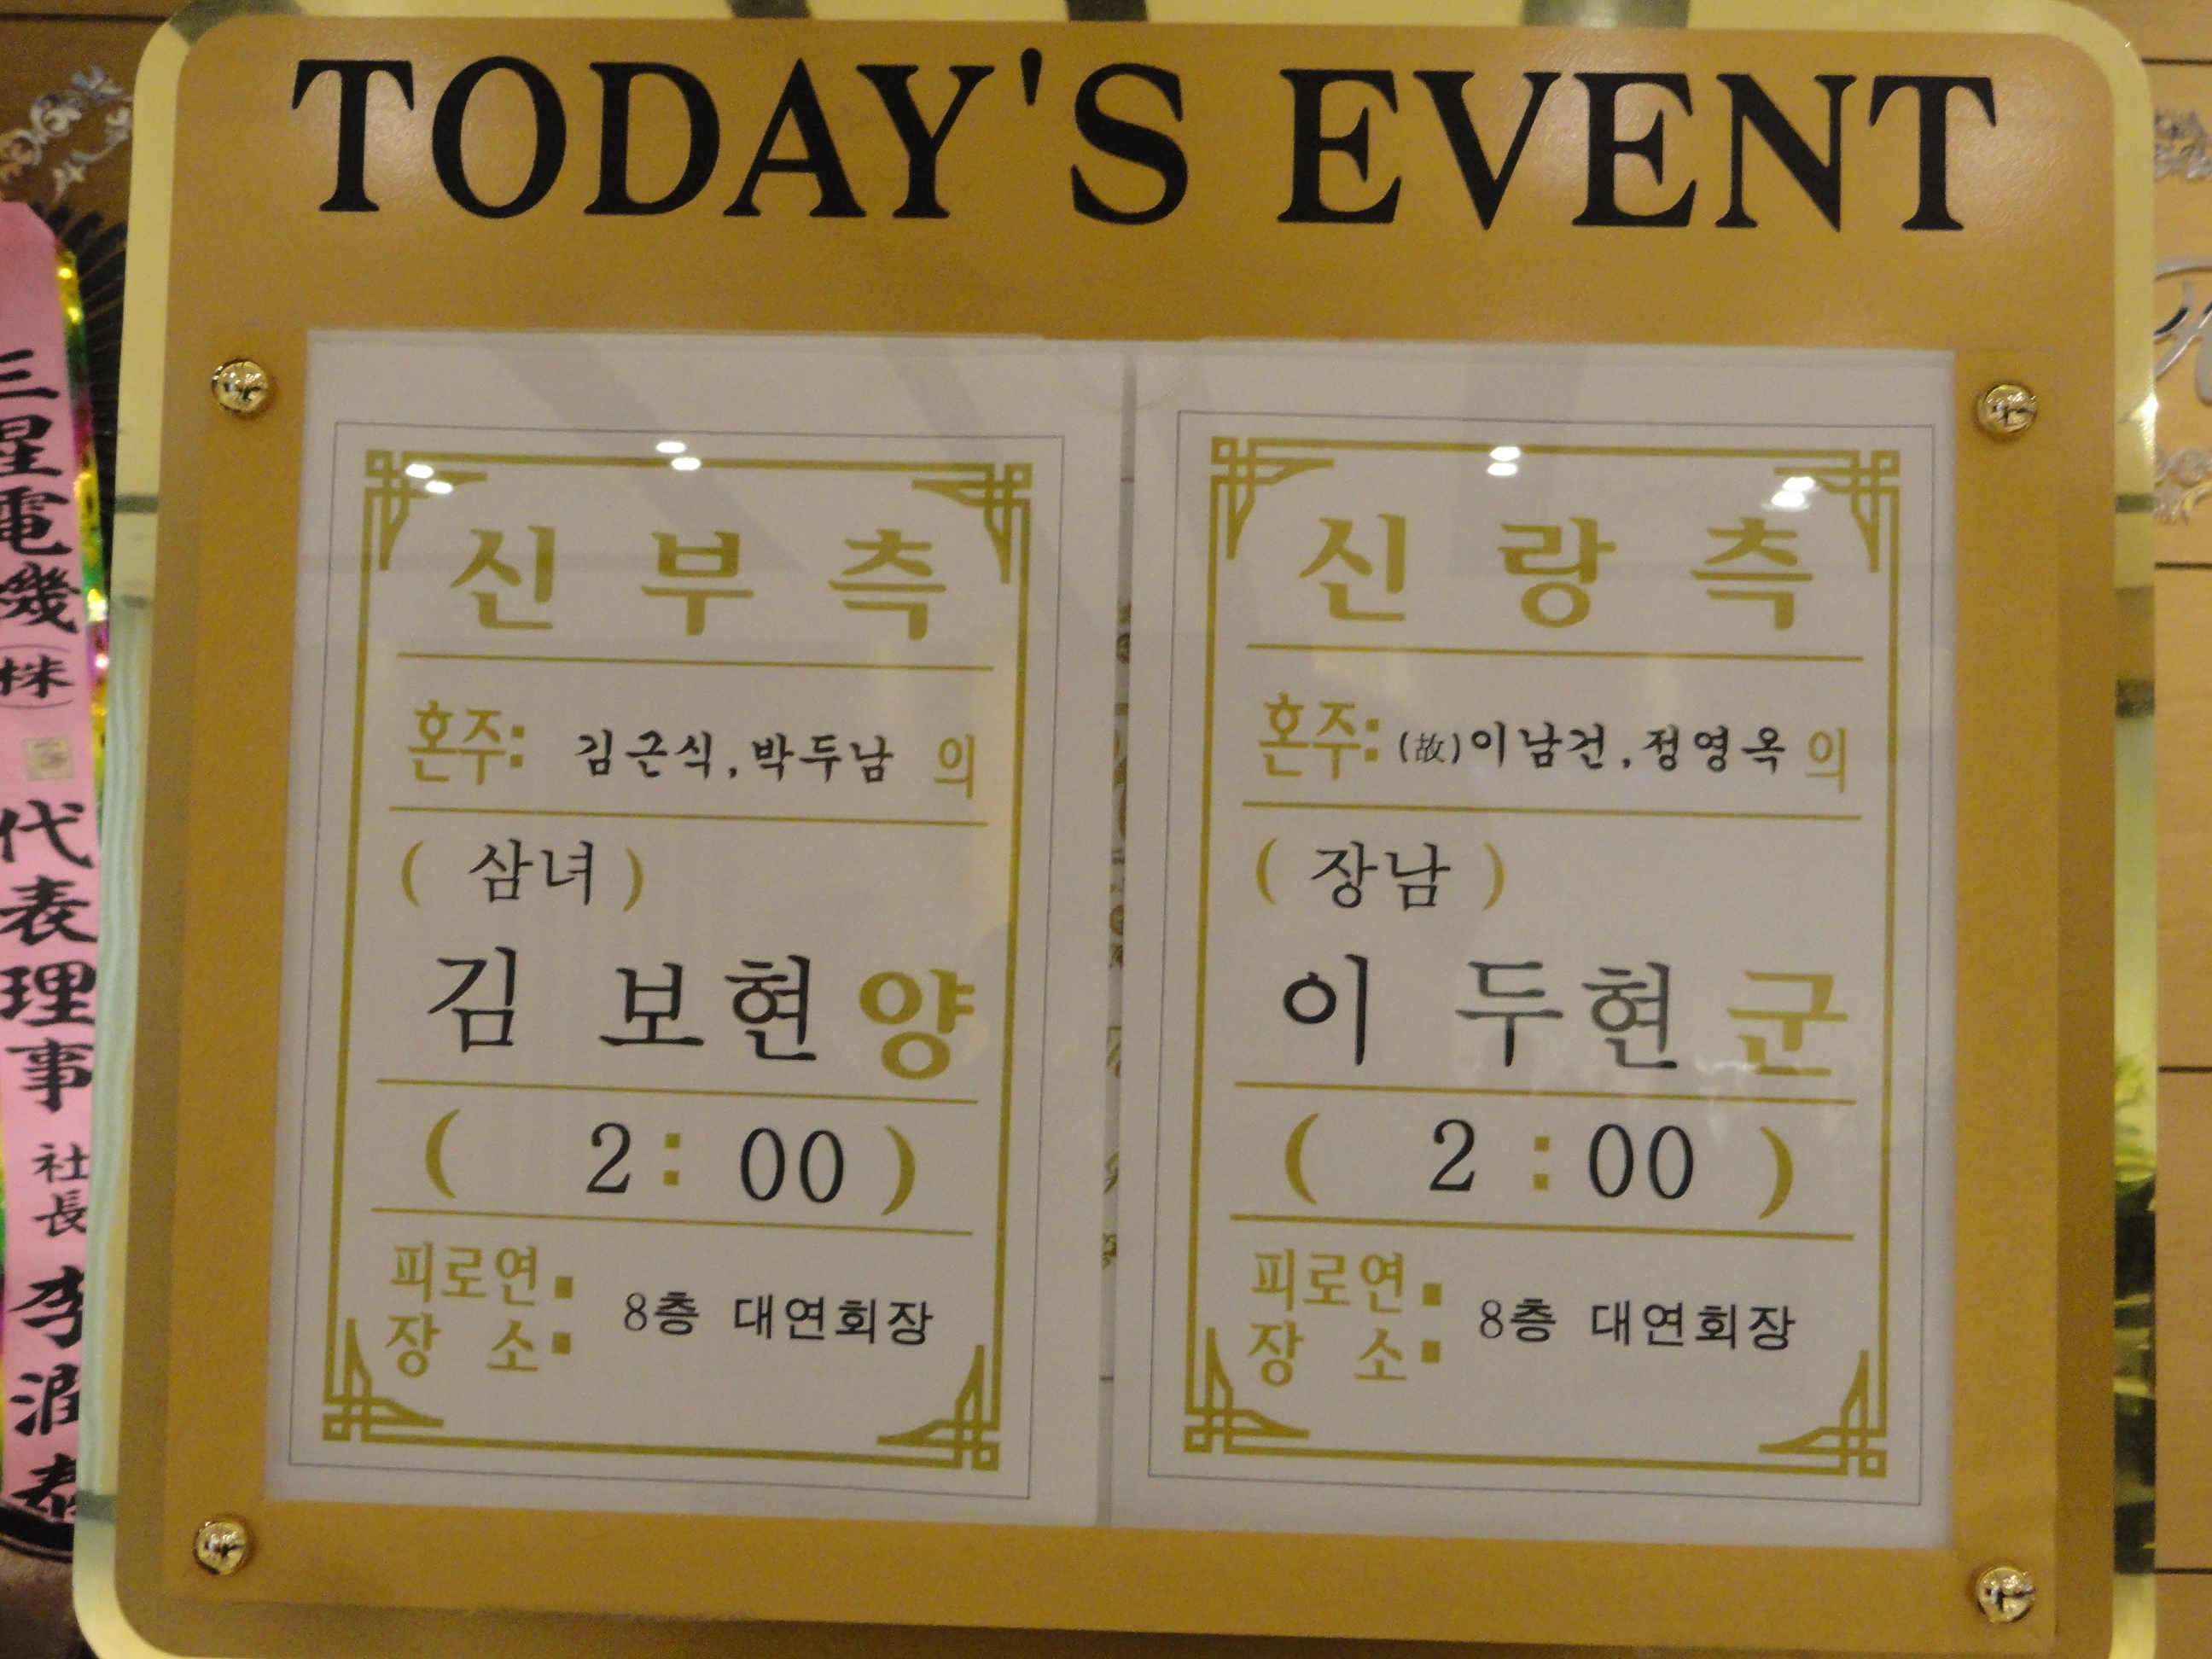 TODAY'S EVENT
신 부 측
혼주: 김근식, 박두남 의
( 삼녀 )
김 보현 양
( 2 : 00 )
피로연:
장 소: 8층 대연회장
신 랑 측
혼주: (故)이남건, 정영옥 의
( 장남 )
이 두현 군
( 2 : 00 )
피로연:
장 소: 8층 대연회장
三星電機(株) 代表理事 社長 李潤泰